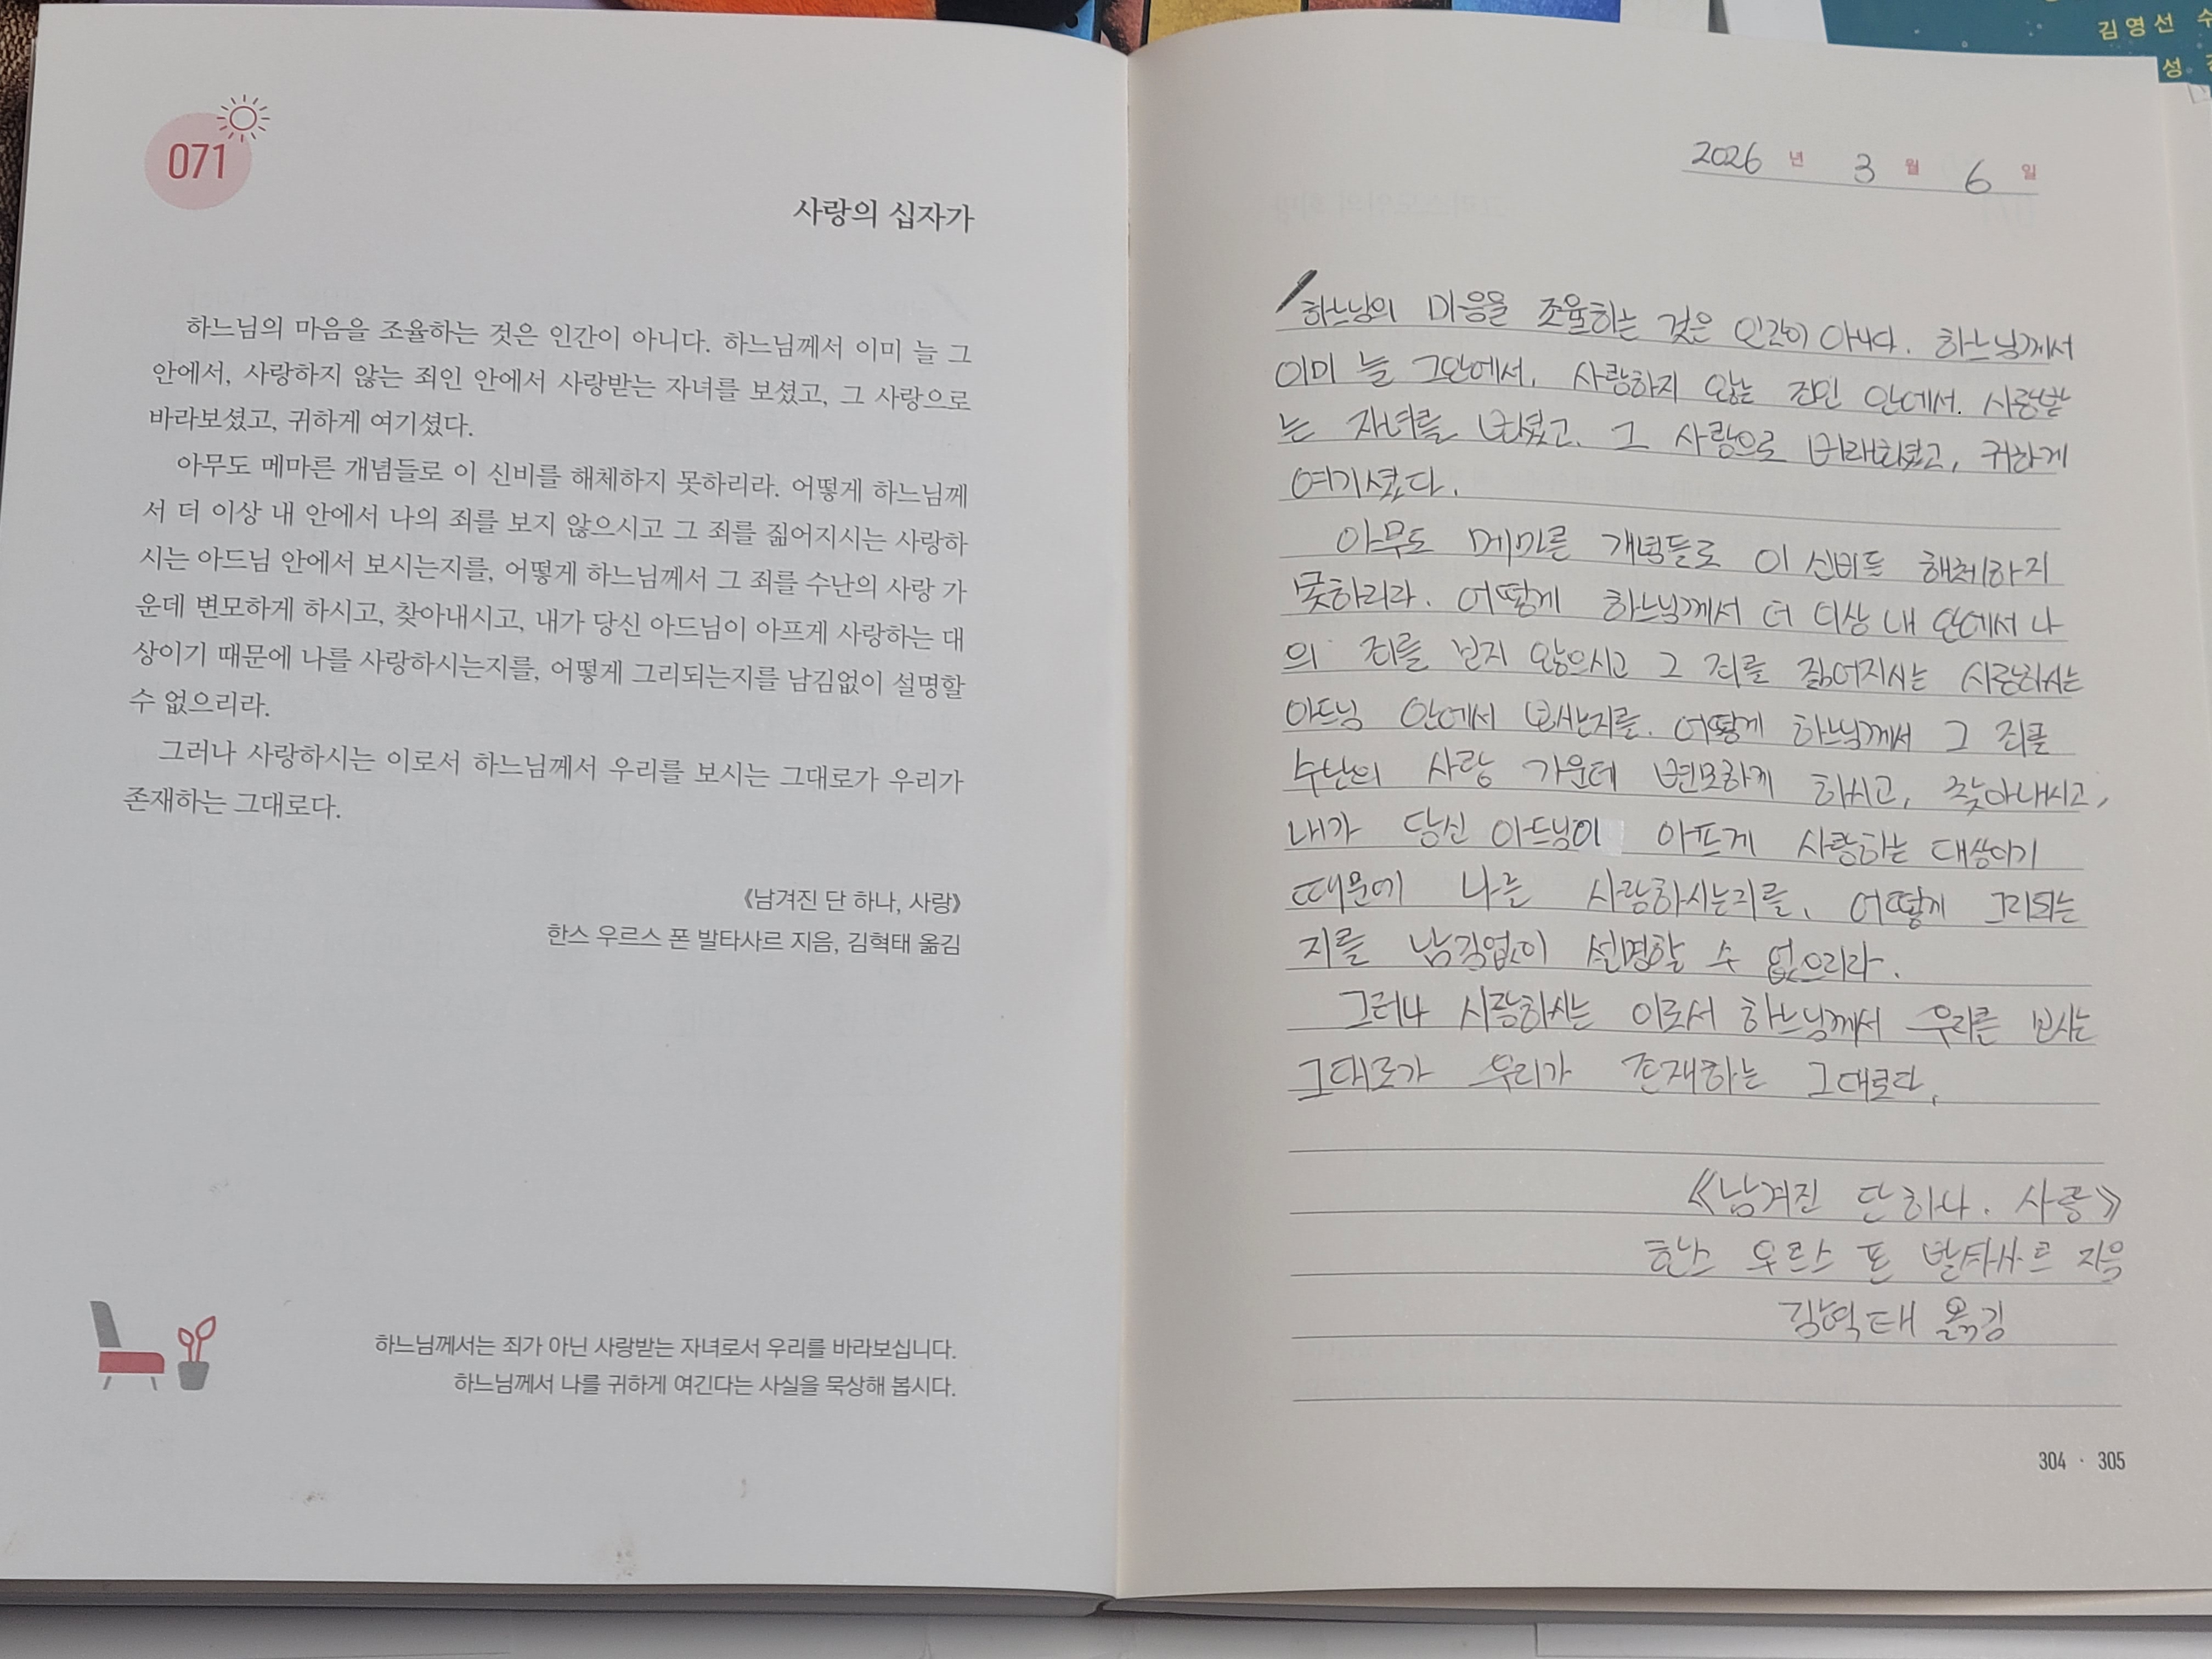 김영선 수
성
071
사랑의 십자가
하느님의 마음을 조율하는 것은 인간이 아니다. 하느님께서 이미 늘 그
안에서, 사랑하지 않는 죄인 안에서 사랑받는 자녀를 보셨고, 그 사랑으로
바라보셨고, 귀하게 여기셨다.
아무도 메마른 개념들로 이 신비를 해체하지 못하리라. 어떻게 하느님께
서 더 이상 내 안에서 나의 죄를 보지 않으시고 그 죄를 짊어지시는 사랑하
시는 아드님 안에서 보시는지를, 어떻게 하느님께서 그 죄를 수난의 사랑 가
운데 변모하게 하시고, 찾아내시고, 내가 당신 아드님이 아프게 사랑하는 대
상이기 때문에 나를 사랑하시는지를, 어떻게 그리되는지를 남김없이 설명할
수 없으리라.
그러나 사랑하시는 이로서 하느님께서 우리를 보시는 그대로가 우리가
존재하는 그대로다.
《남겨진 단 하나, 사랑》
한스 우르스 폰 발타사르 지음, 김혁태 옮김
하느님께서는 죄가 아닌 사랑받는 자녀로서 우리를 바라보십니다.
하느님께서 나를 귀하게 여긴다는 사실을 묵상해 봅시다.
2026 년 3 월 6 일
하느님의 마음을 조율하는 것은 인간이 아니다. 하느님께서
이미 늘 그안에서, 사랑하지 않는 죄인 안에서. 사랑받
는 자녀를 보셨고. 그 사랑으로 바라보셨고, 귀하게
여기셨다.
아무도 메마른 개념들로 이 신비를 해체하지
못하리라. 어떻게 하느님께서 더 이상 내 안에서 나
의 죄를 보지 않으시고 그 죄를 짊어지시는 사랑하시는
아드님 안에서 보시는지를. 어떻게 하느님께서 그 죄를
수난의 사랑 가운데 변모하게 하시고, 찾아내시고,
내가 당신 아드님이 아프게 사랑하는 대상이기
때문에 나를 사랑하시는지를, 어떻게 그리되는
지를 남김없이 설명할 수 없으리라.
그러나 사랑하시는 이로서 하느님께서 우리를 보시는
그대로가 우리가 존재하는 그대로다.
《남겨진 단 하나. 사랑》
한스 우르스 폰 발타사르 지음
김혁태 옮김
304 · 305